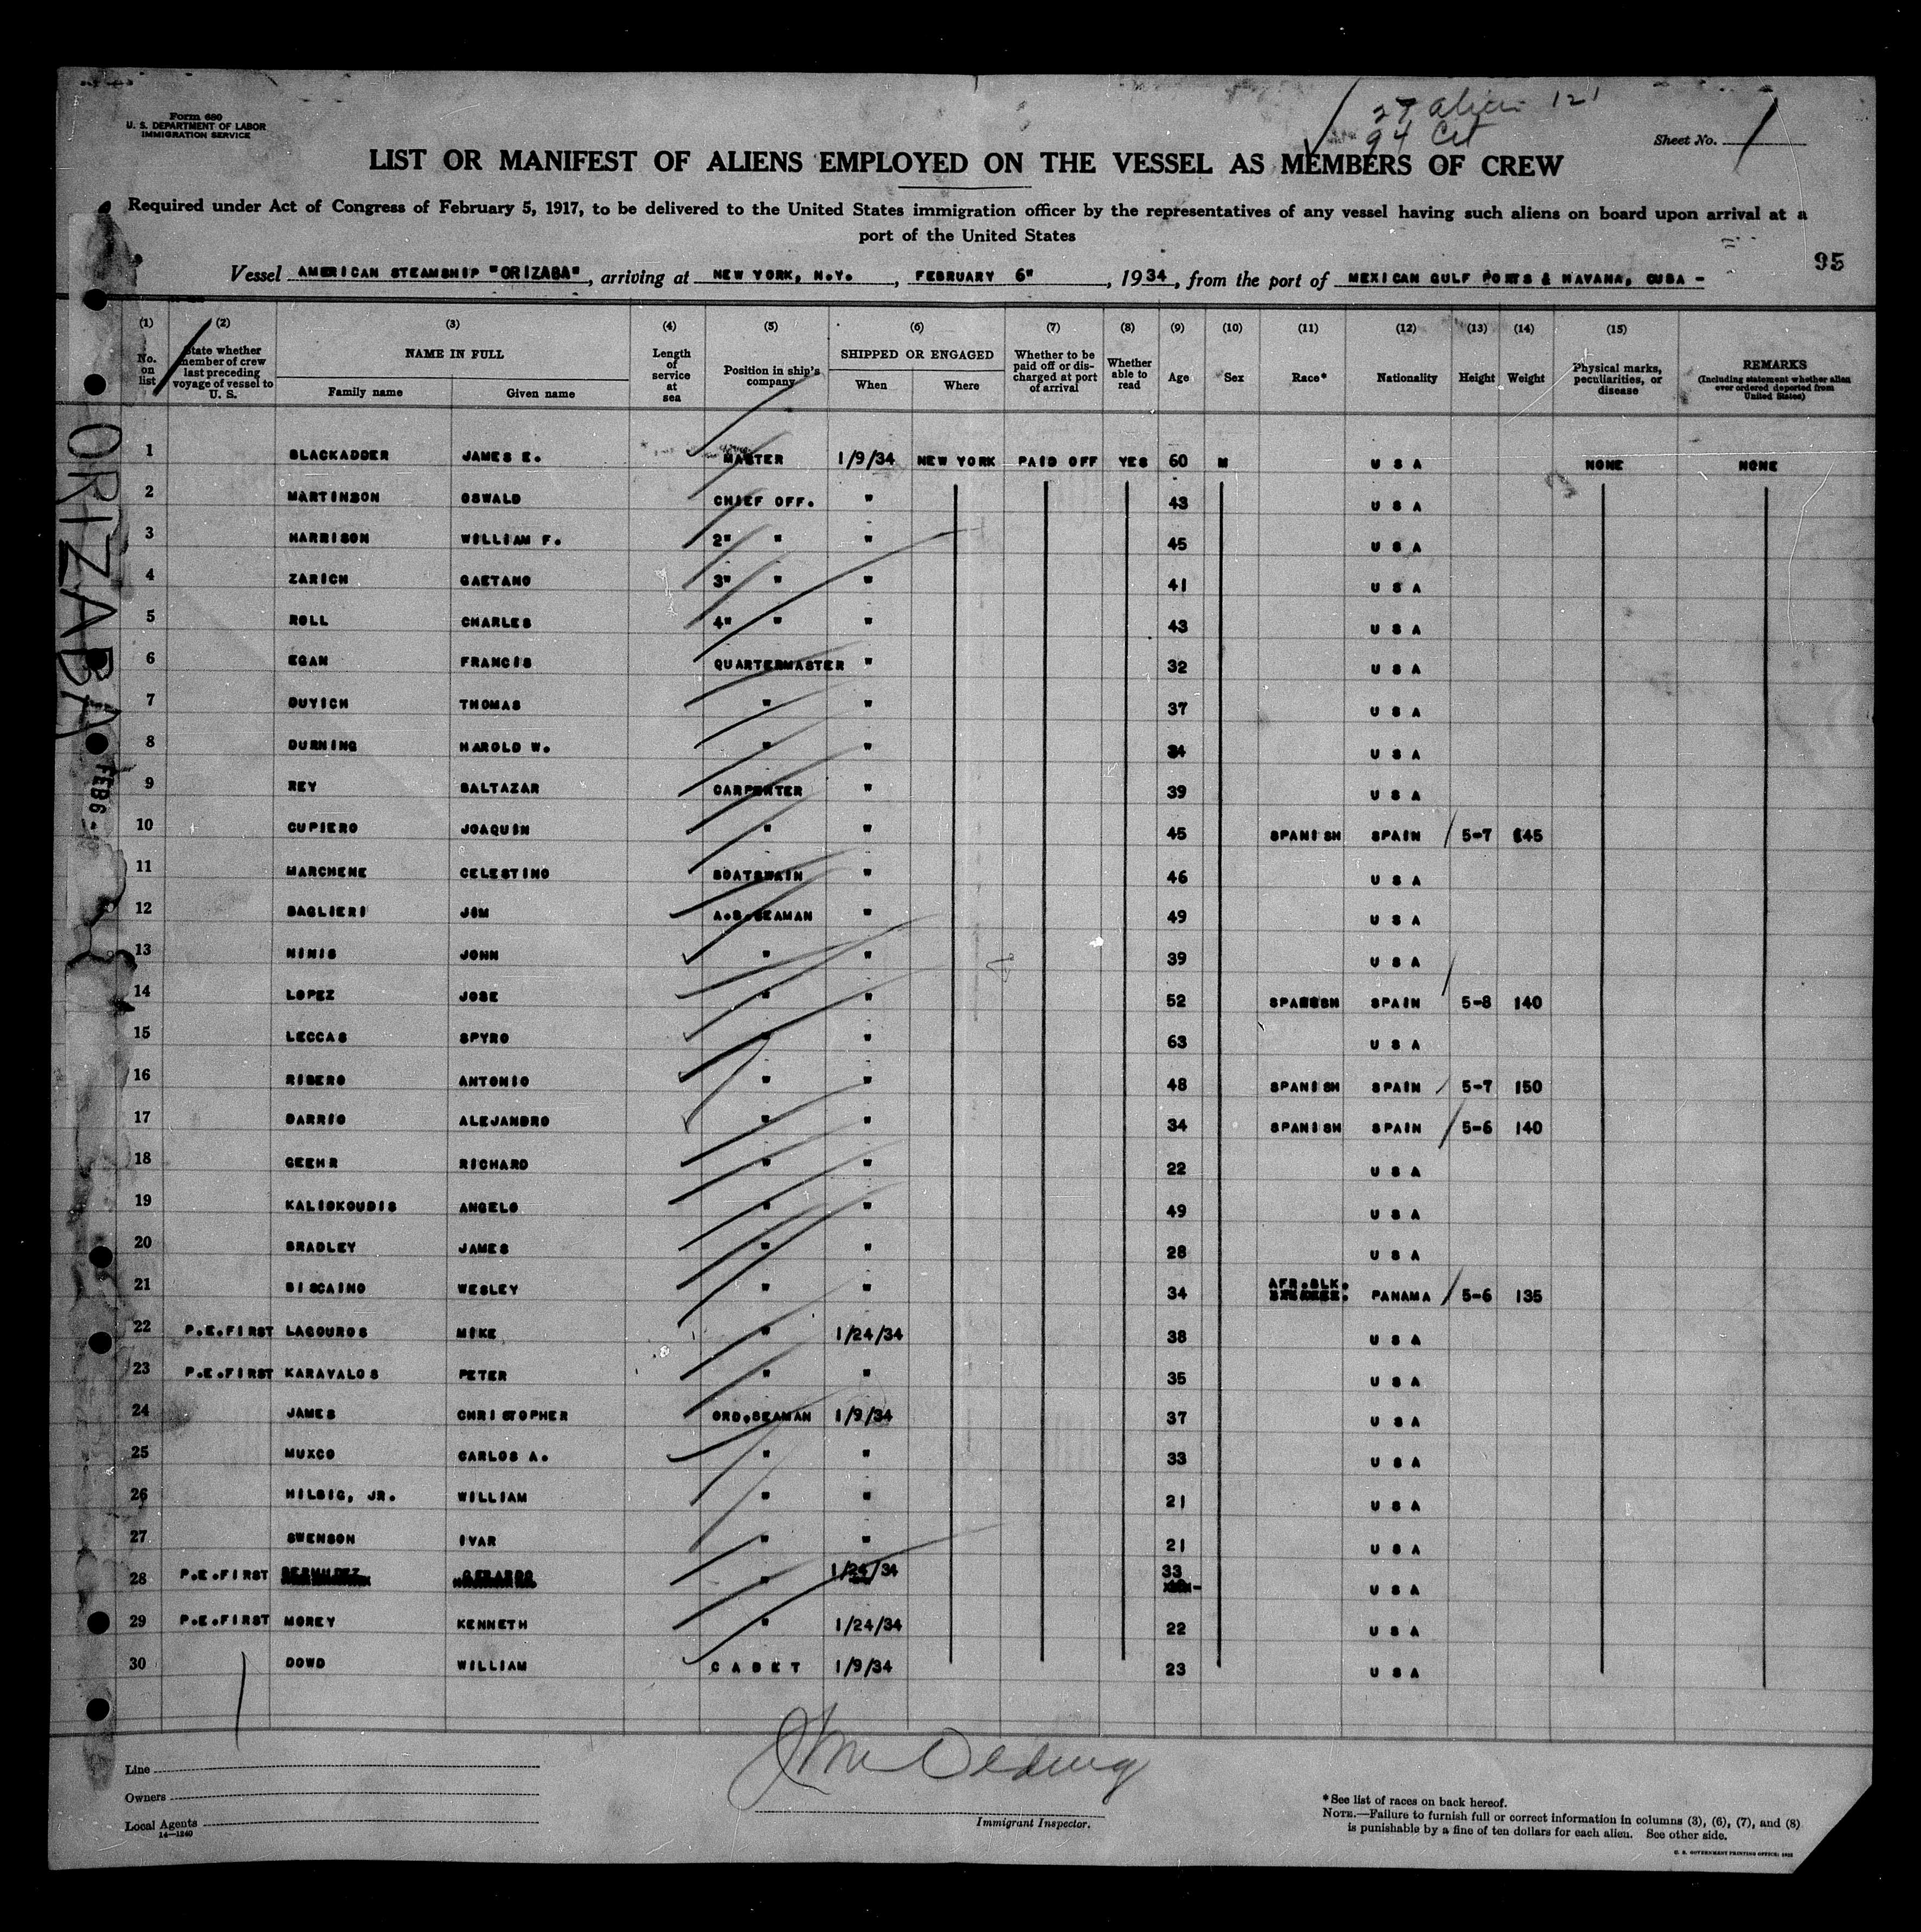 Form 680
U. S. DEPARTMENT OF LABOR
IMMIGRATION SERVICE
27 alien 121
94 Cit
Sheet No. 1
LIST OR MANIFEST OF ALIENS EMPLOYED ON THE VESSEL AS MEMBERS OF CREW
Required under Act of Congress of February 5, 1917, to be delivered to the United States immigration officer by the representatives of any vessel having such aliens on board upon arrival at a
port of the United States
95
Vessel AMERICAN STEAMSHIP "ORIZABA", arriving at NEW YORK, N.Y., FEBRUARY 6", 1934, from the port of MEXICAN GULF PORTS & HAVANA, CUBA -
(1) (2) (3) (4) (5) (6) (7) (8) (9) (10) (11) (12) (13) (14) (15)
No. on list
State whether member of crew last preceding voyage of vessel to U. S.
NAME IN FULL
Family name Given name
Length of service at sea
Position in ship's company
SHIPPED OR ENGAGED
When Where
Whether to be paid off or discharged at port of arrival
Whether able to read
Age Sex Race* Nationality Height Weight
Physical marks, peculiarities, or disease
REMARKS
(Including statement whether alien ever ordered deported from United States)
1 BLACKADDER JAMES E. MASTER 1/9/34 NEW YORK PAID OFF YES 60 M U S A NONE NONE
2 MARTINSON OSWALD CHIEF OFF. " 43 U S A
3 HARRISON WILLIAM F. 2" " " 45 U S A
4 ZARICH GAETANO 3" " " 41 U S A
5 ROLL CHARLES 4" " " 43 U S A
6 EGAN FRANCIS QUARTERMASTER " 32 U S A
7 DUYICH THOMAS " " 37 U S A
8 DURNING HAROLD W. " " 34 U S A
9 REY BALTAZAR CARPENTER " 39 U S A
10 CUPIERO JOAQUIN " " 45 SPANISH SPAIN 5-7 145
11 MARCHENE CELESTINO BOATSWAIN " 46 U S A
12 BAGLIERI JIM A.B.SEAMAN " 49 U S A
13 NINIS JOHN " " 39 U S A
14 LOPEZ JOSE " " 52 SPANISH SPAIN 5-8 140
15 LECCAS SPYRO " " 63 U S A
16 RIBERO ANTONIO " " 48 SPANISH SPAIN 5-7 150
17 BARRIO ALEJANDRO " " 34 SPANISH SPAIN 5-6 140
18 GEEHR RICHARD " " 22 U S A
19 KALIOKOUDIS ANGELO " " 49 U S A
20 BRADLEY JAMES " " 28 U S A
21 BISCAINO WESLEY " " 34 AFR.BLK. PANAMA 5-6 135
22 P.E.FIRST LAGOUROS MIKE " 1/24/34 38 U S A
23 P.E.FIRST KARAVALOS PETER " " 35 U S A
24 JAMES CHRISTOPHER ORD.SEAMAN 1/9/34 37 U S A
25 MUXCO CARLOS A. " " 33 U S A
26 HILBIG, JR. WILLIAM " " 21 U S A
27 SWENSON IVAR " " 21 U S A
28 P.E.FIRST BERMUDEZ GERARDO " 1/24/34 33 U S A
29 P.E.FIRST MOREY KENNETH " 1/24/34 22 U S A
30 DOWD WILLIAM C A D E T 1/9/34 23 U S A
ORIZABA
FEB 6 -
Line
Owners
Local Agents
14—1240
Immigrant Inspector.
*See list of races on back hereof.
NOTE.—Failure to furnish full or correct information in columns (3), (6), (7), and (8)
is punishable by a fine of ten dollars for each alien. See other side.
U. S. GOVERNMENT PRINTING OFFICE: